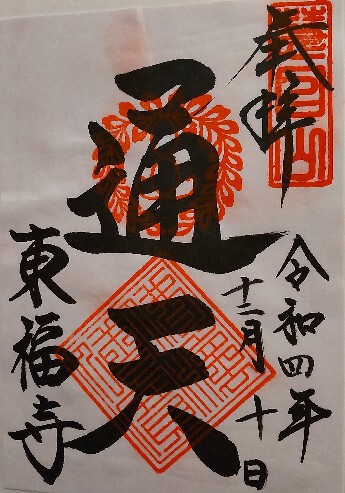 奉拝
令和四年
十二月十日
通天
東福寺